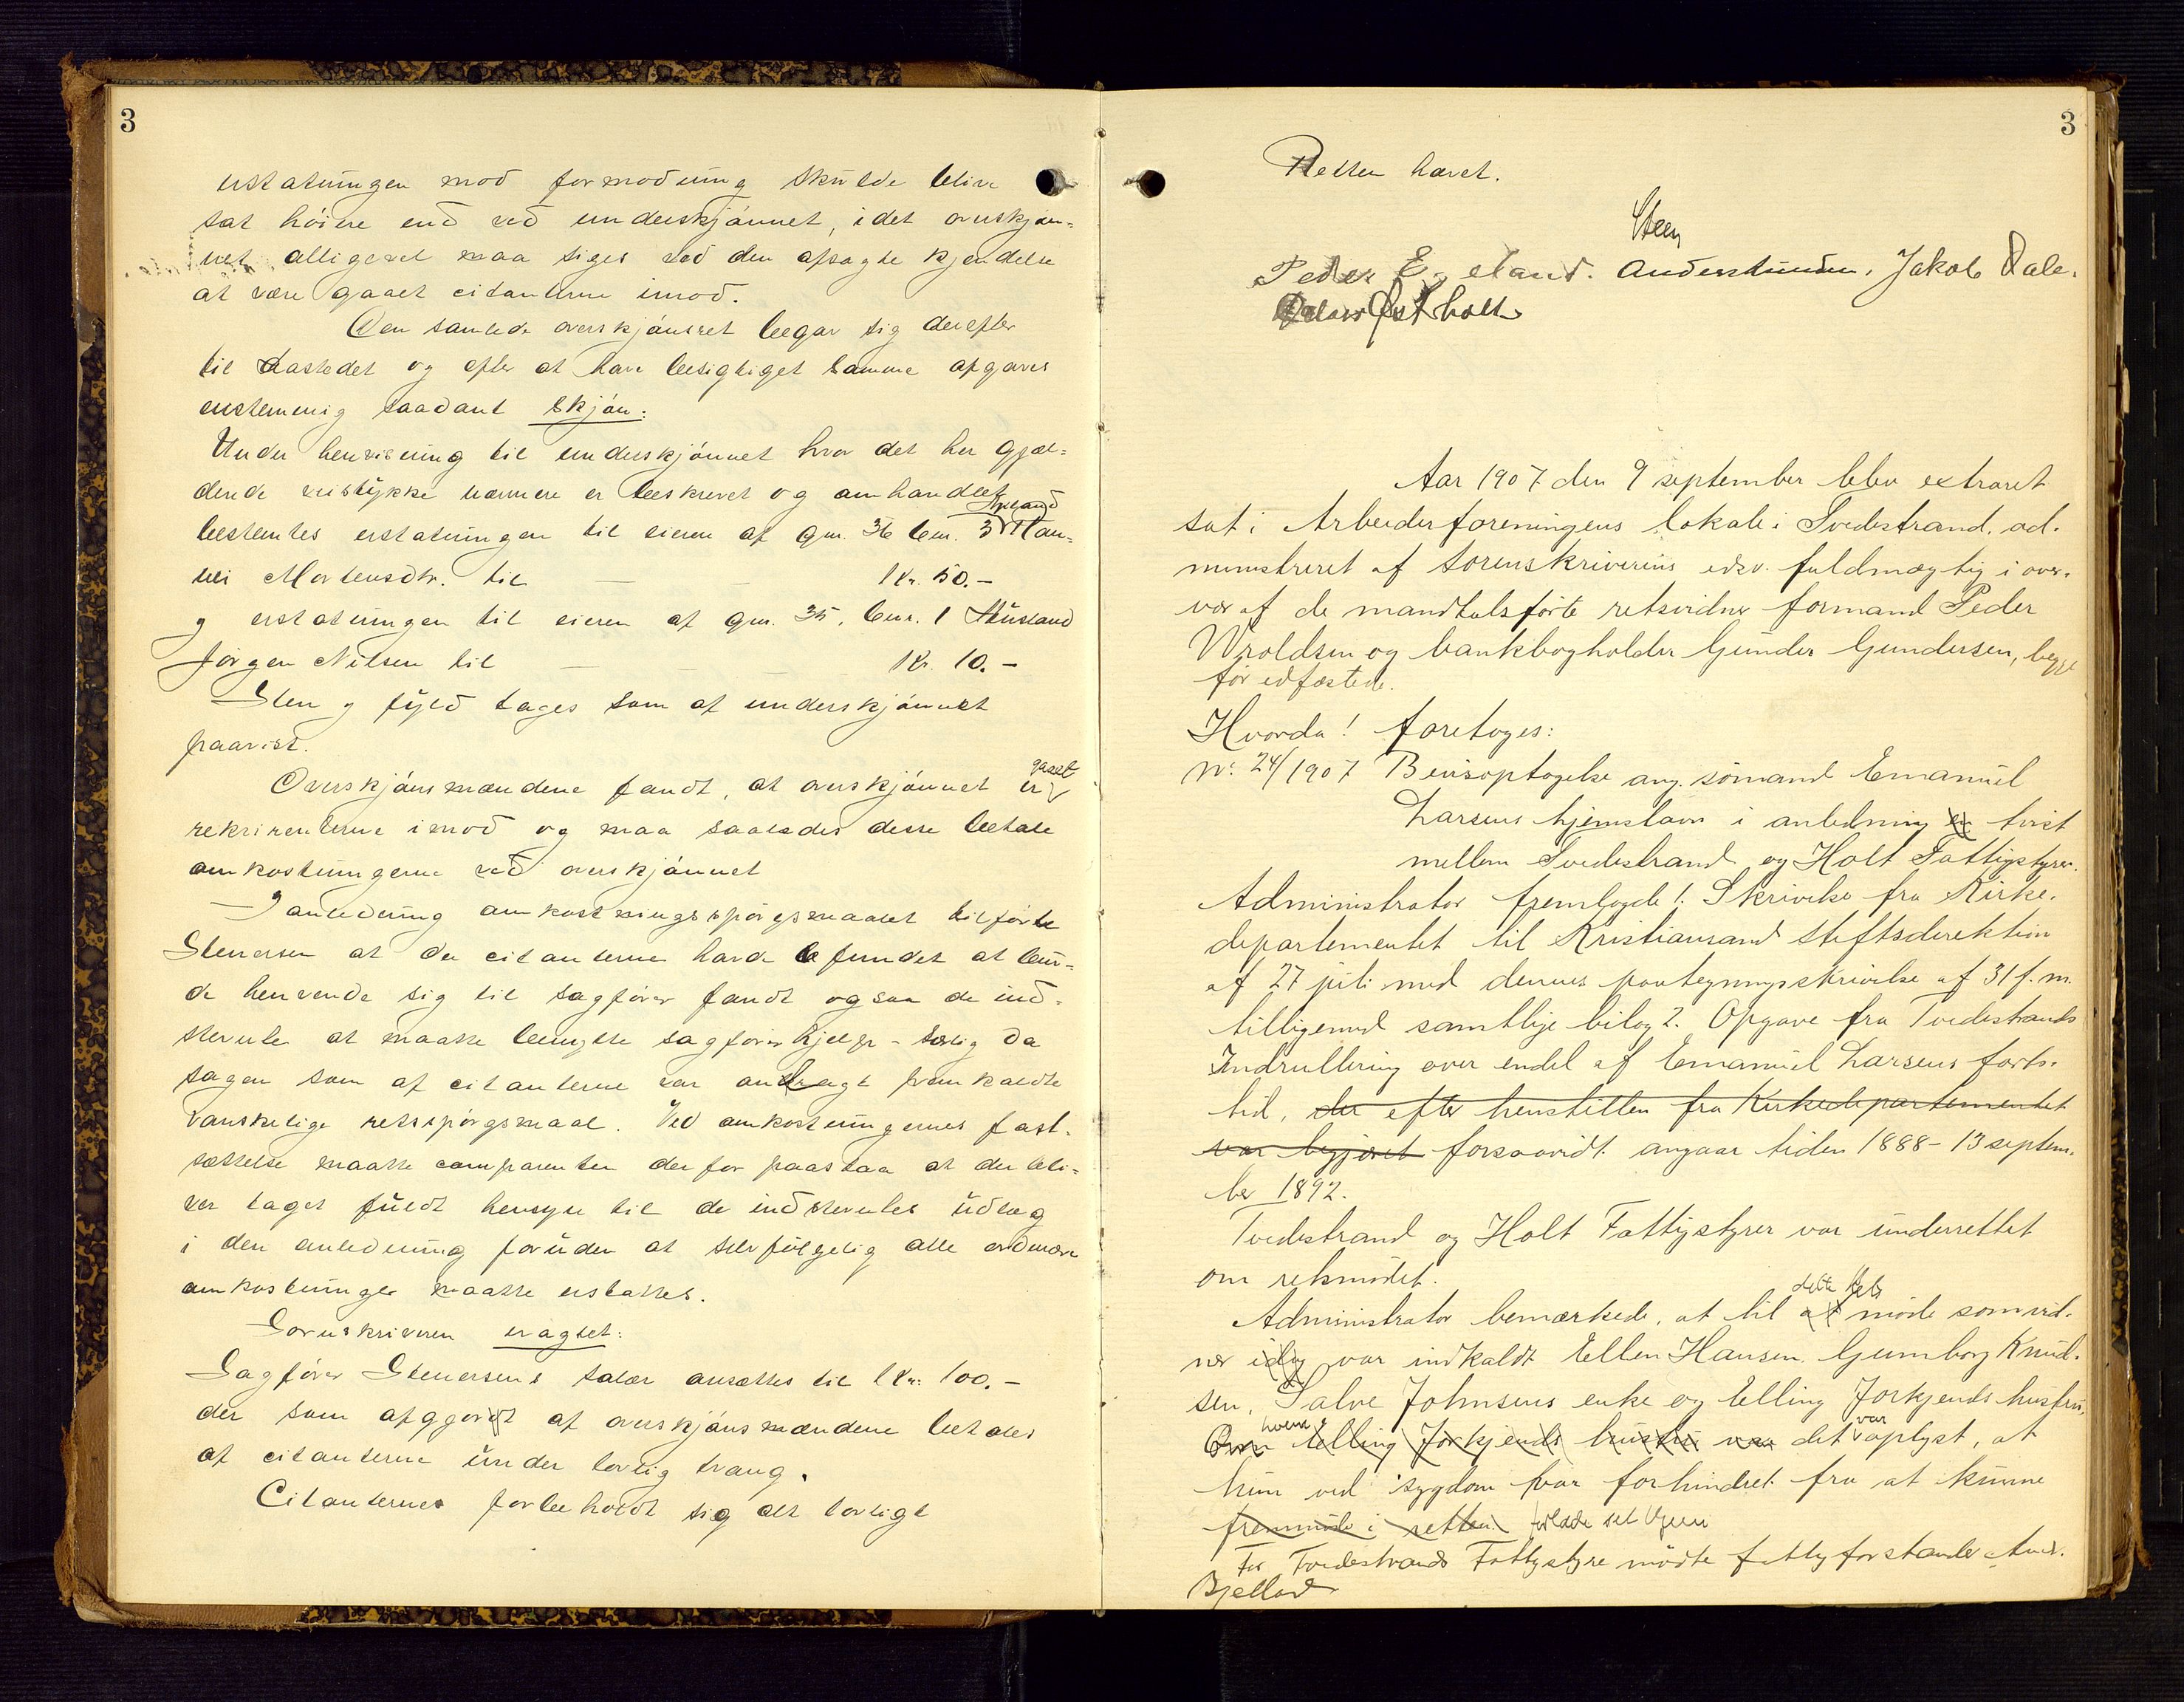 3
erstatningen mod formodning skulde blive
sat höiere end ved underskjönnet, idet overskjön-
net alligevel maa siges ved den afsagte kjendelse
at være gaaet citanterne imod.
Den samlede overskjönsret begav sig derefter
til aastedet og efter at have besigtiget samme afgaves
enstemmig saadant skjön:
Under henvisning til underskjönnet hvor det her gjæl-
dende veistykke nærmere er beskrevet og omhandlet
bestemtes erstatningen til eieren af gnr. 36 bnr. 3
Mortensdtr. til Kr. 50.-
g erstatningen til eieren af gnr. 35. bnr. 1
Jörgen Nilsen til Kr. 10.-
Sten g fyld tages som af underskjönnet
paavist.
Overskjönsmændene fandt, at overskjönnet er gaaet
rekvirenterne imod og maa saaledes disse betale
omkostningerne ved overskjönnet
I anledning omkostningsspörgsmaalet tilförte
Stenersen at da citanterne havde fundet at bur-
de henvende sig til sagförer fandt ogsaa de ind-
stevnte at maatte benytte sagförerhjelp - særlig da
sagen som af citanterne var anlagt fremkaldte
vanskelige retsspörgsmaal. Ved omkostningernes fast-
sættelse maatte comparenten derfor paastaa at der bli-
ver taget fuldt hensyn til de indstevntes udlæg
i den anledning foruden at selvfölgelig alle ordinære
omkostninger maatte erstattes.
Sorenskriveren eragtet:
Sagförer Stenersens salær ansættes til Kr. 100.-
der som afgjordt af overskjönsmændene betales
af citanterne under lovlig tvang.
Citanternes forbeholdt sig alt lovligt
3
Retten hævet.
Steen
Peder Egeland. Jakob Dale.
Aar 1907 den 9 september blev extraret
sat i Arbeiderforeningens lokale i Tvedestrand, ad-
ministreret af sorenskriverens edsv. fuldmægtig i over-
vær af de mandtalsförte retsvidner formand Peder
Wroldsen og bankbogholder Gunder Gundersen, begge
før edfæstede.
Hvorda! foretoges:
No. 24/1907 Bevisoptagelse ang. sömand Emanuel
Larsens hjemstavn i anledning tvist
mellem Tvedestrand og Holt Fattigstyrer.
Administrator fremlagde 1. Skrivelse fra Kirke-
departementet til Kristiansand stiftsdirektion
af 27 juli med dennes paategningsskrivelse af 31 f. m.
tilligemed samtlige bilag 2. Opgave fra Tvedestrands
Indrullering over endel af Emanuel Larsens farts-
tid, der efter henstillen fra Kirkedepartementet
var begjæret forsaavidt angaar tiden 1888 - 13 septem-
ber 1892.
Tvedestrand og Holt Fattigstyrer var underrettet
om retsmödet.
Administrator bemærkede, at til dette rets möde som vid-
ner idag var indkaldt Ellen Hansen. Gumborg Knud-
sen, Salve Johnsens enke og Elling Forkjends hustru,
Om hvem Elling Forkjends hustru var det var oplyst, at
hun ved sygdom var forhindret fra at kunne
fremmöde i retten forlade sit hjem
For Tvedestrands Fattigstyre mödte fattigforstander And.
Bjelland